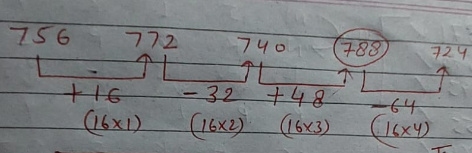 756 772 740 788 724
+16 -32 +48 -64
(16x1) (16x2) (16x3) (16x4)